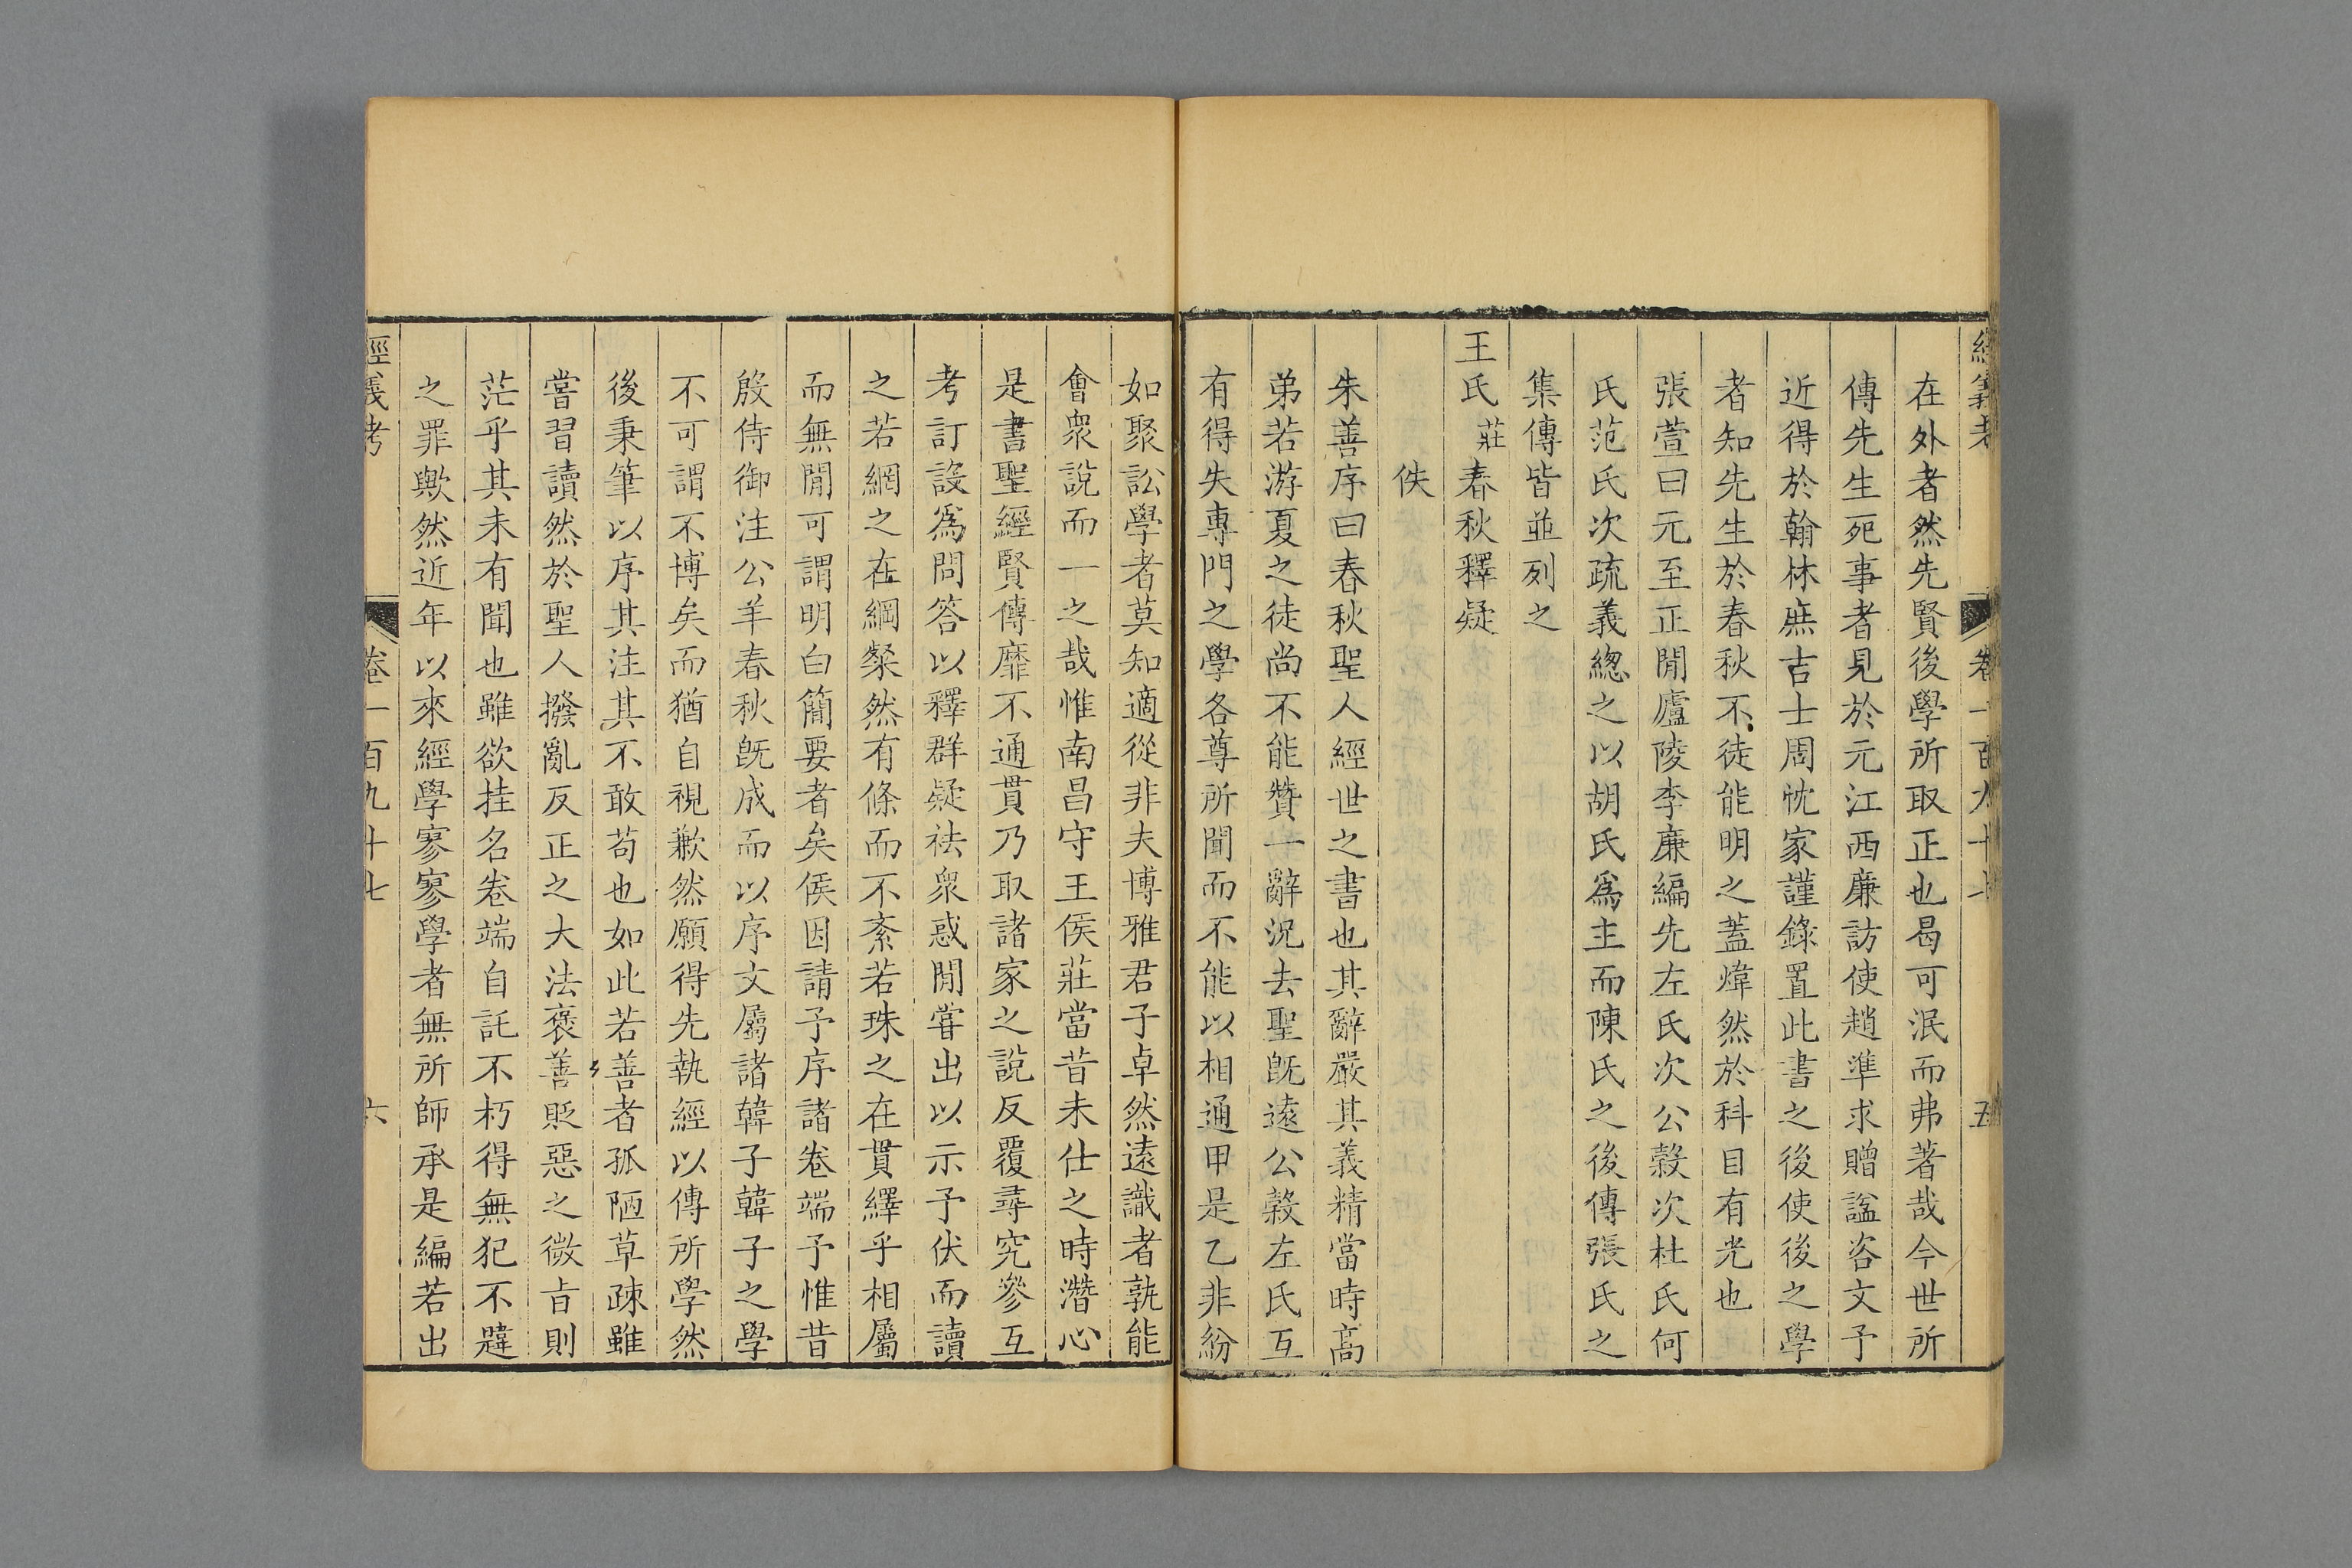 經義考 卷一百九十七 五
在外者然先賢後學所取正也曷可泯而弗著哉今世所
傳先生死事者見於元江西廉訪使趙準求贈諡咨文予
近得於翰林庶吉士周忱家謹錄置此書之後使後之學
者知先生於春秋不徒能明之蓋煒然於科目有光也
張萱曰元至正閒廬陵李廉編先左氏次公穀次杜氏何
氏范氏次疏義總之以胡氏爲主而陳氏之後傳張氏之
集傳皆並列之
王氏莊春秋釋疑
佚
朱善序曰春秋聖人經世之書也其辭嚴其義精當時高
弟若游夏之徒尚不能贊一辭況去聖旣遠公穀左氏互
有得失專門之學各尊所聞而不能以相通甲是乙非紛
如聚訟學者莫知適從非夫博雅君子卓然遠識者孰能
會衆說而一之哉惟南昌守王侯莊當昔未仕之時潛心
是書聖經賢傳靡不通貫乃取諸家之說反覆尋究參互
考訂設爲問答以釋群疑袪衆惑閒嘗出以示予伏而讀
之若網之在綱粲然有條而不紊若珠之在貫繹乎相屬
而無閒可謂明白簡要者矣侯因請予序諸卷端予惟昔
殷侍御注公羊春秋旣成而以序文屬諸韓子韓子之學
不可謂不博矣而猶自視歉然願得先執經以傳所學然
後秉筆以序其注其不敢苟也如此若善者孤陋草疎雖
嘗習讀然於聖人撥亂反正之大法褒善貶惡之微旨則
茫乎其未有聞也雖欲挂名卷端自託不朽得無犯不韙
之罪歟然近年以來經學寥寥學者無所師承是編若出
經義考 卷一百九十七 六